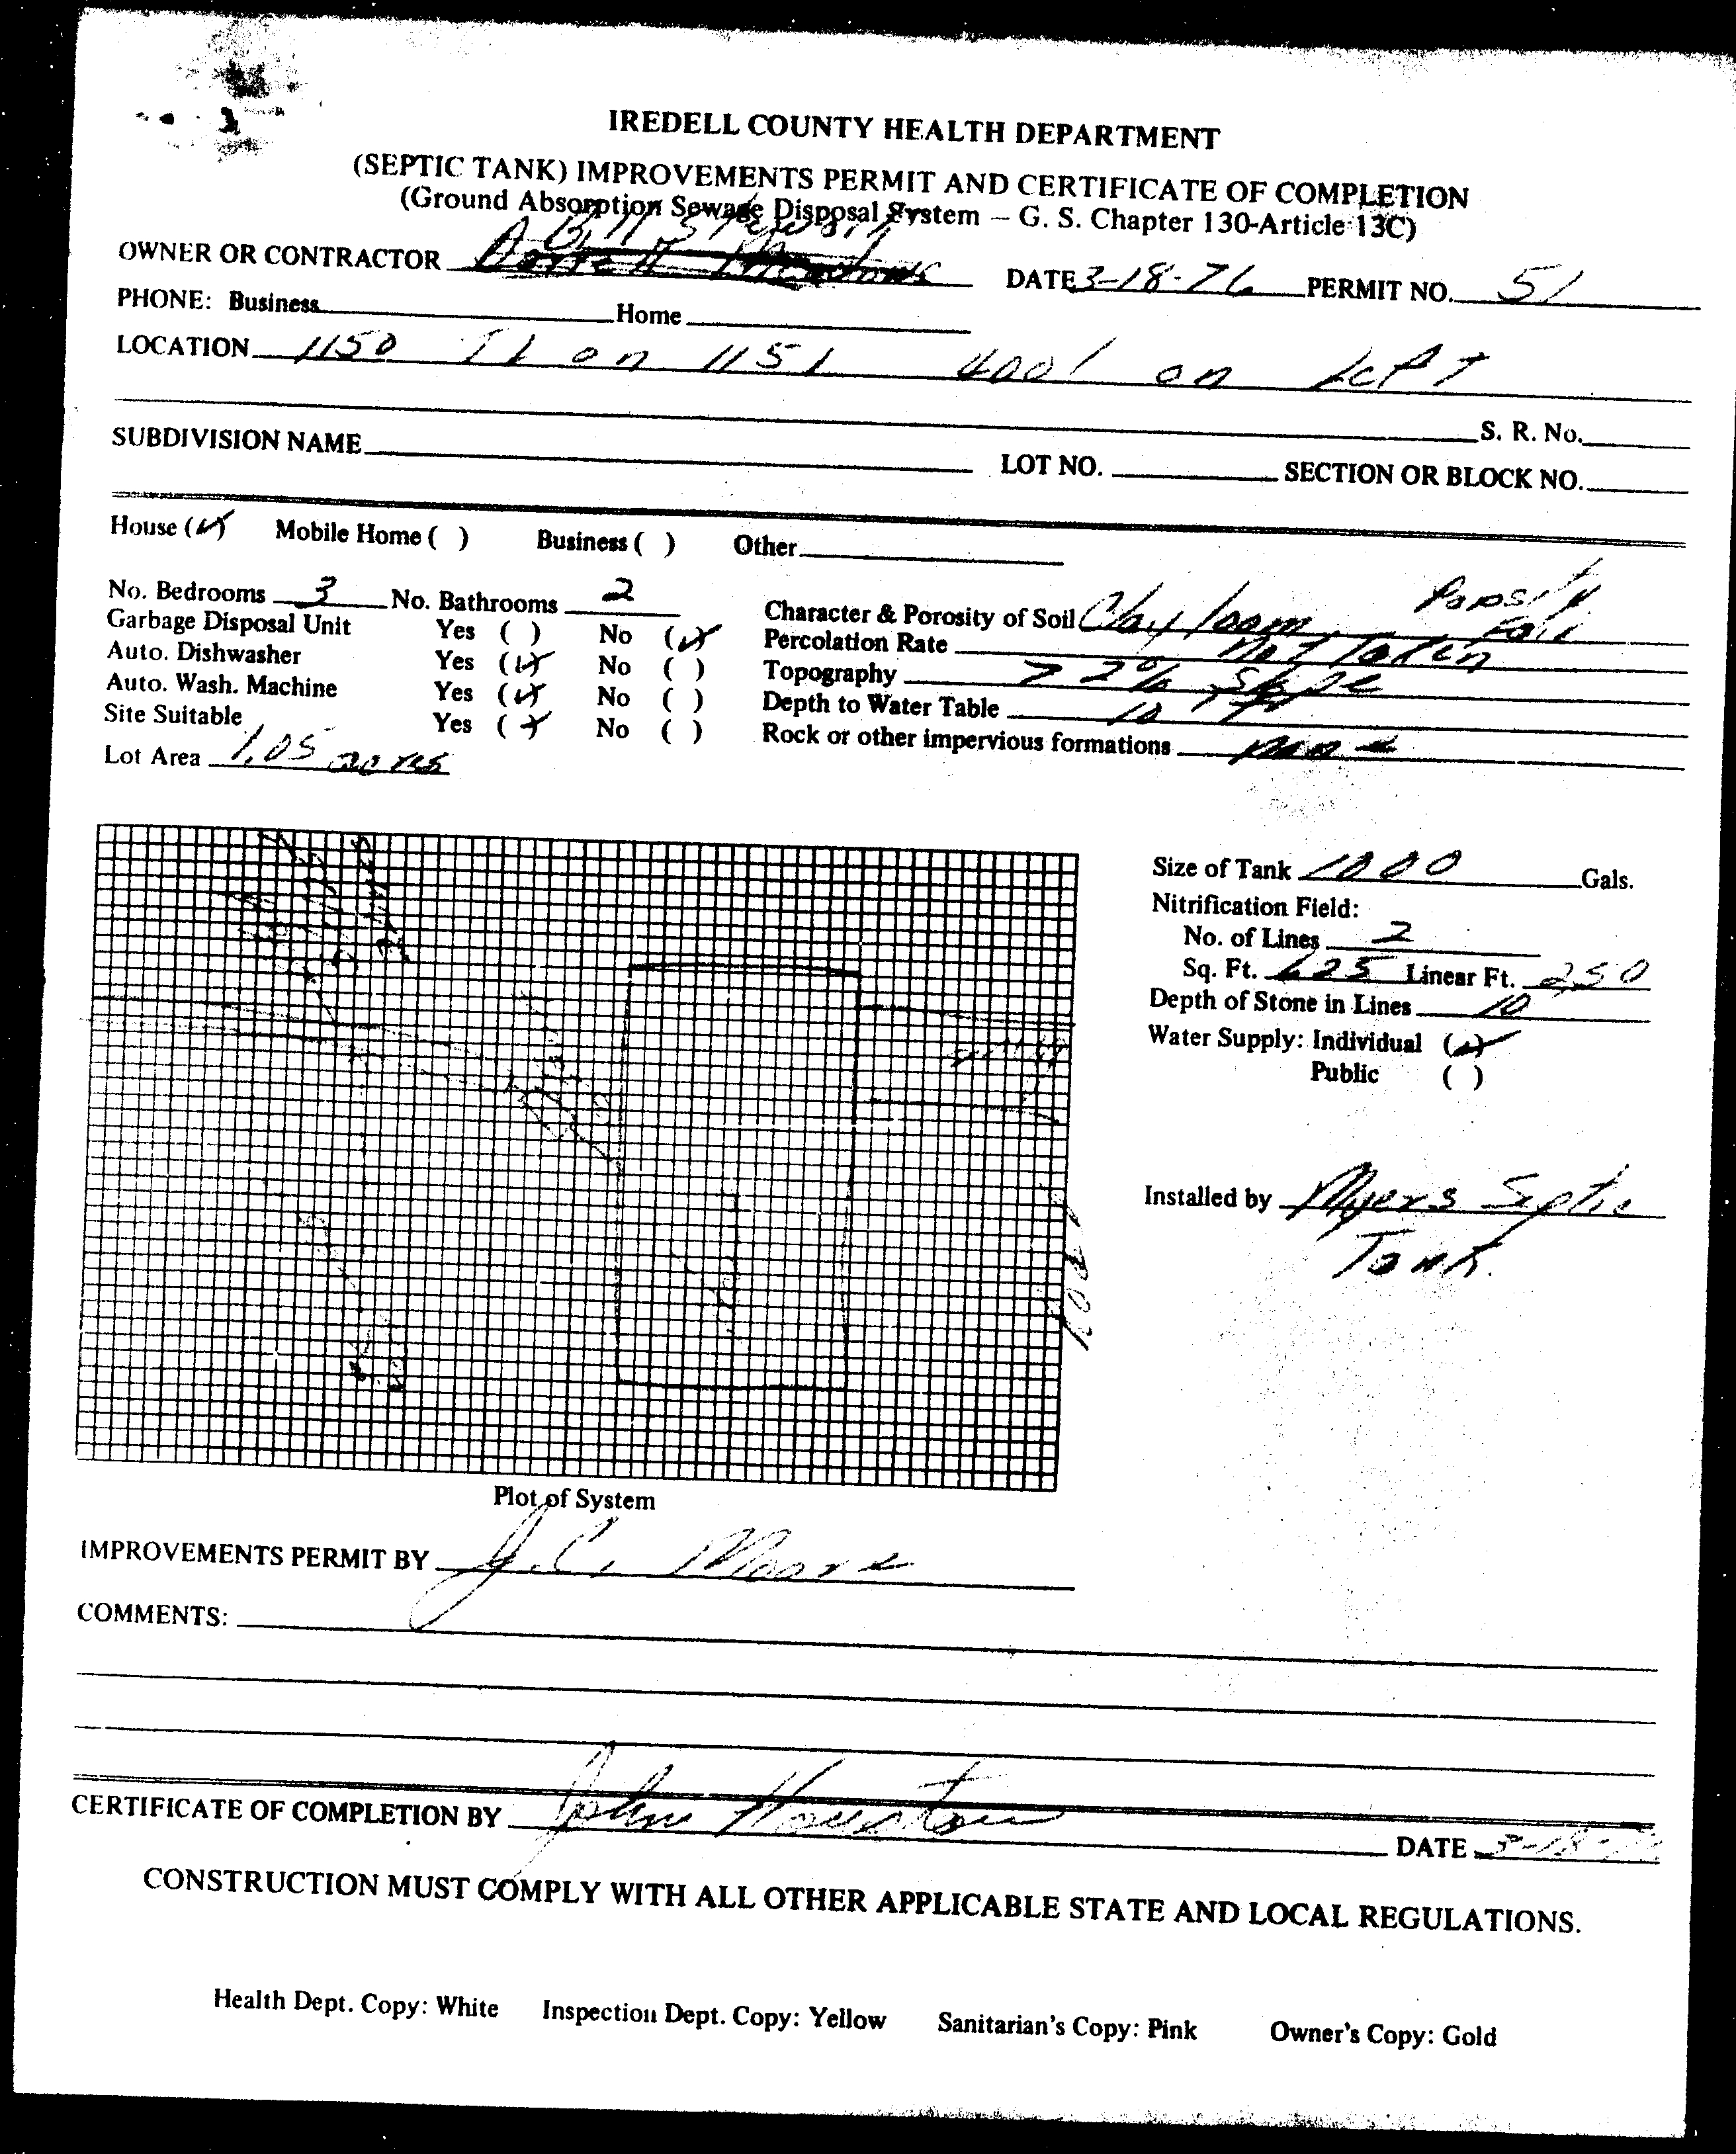 IREDELL COUNTY HEALTH DEPARTMENT
(SEPTIC TANK) IMPROVEMENTS PERMIT AND CERTIFICATE OF COMPLETION
(Ground Absorption Sewage Disposal System — G. S. Chapter 130-Article 13C)
Bill Stewart
OWNER OR CONTRACTOR DATE 3-18-76 PERMIT NO. 51
PHONE: Business Home
LOCATION 1150 TL on 1151 400' on LeFT
S. R. No.
SUBDIVISION NAME LOT NO. SECTION OR BLOCK NO.
House (✓) Mobile Home ( ) Business ( ) Other
No. Bedrooms 3 No. Bathrooms 2
Garbage Disposal Unit Yes ( ) No (✓)
Auto. Dishwasher Yes (✓) No ( )
Auto. Wash. Machine Yes (✓) No ( )
Site Suitable Yes (✓) No ( )
Lot Area 1.05 acres
Character & Porosity of Soil Clay loam, Porosity Fair
Percolation Rate Not Taken
Topography > 2% Slope
Depth to Water Table 10
Rock or other impervious formations none
Size of Tank 1000 Gals.
Nitrification Field:
No. of Lines 2
Sq. Ft. 625 Linear Ft. 250
Depth of Stone in Lines 10
Water Supply: Individual (✓)
Public ( )
Installed by Myers Septic
Tank
Plot of System
IMPROVEMENTS PERMIT BY J.C. Moore
COMMENTS:
CERTIFICATE OF COMPLETION BY John Houston
DATE 3-18-
CONSTRUCTION MUST COMPLY WITH ALL OTHER APPLICABLE STATE AND LOCAL REGULATIONS.
Health Dept. Copy: White Inspection Dept. Copy: Yellow Sanitarian's Copy: Pink Owner's Copy: Gold